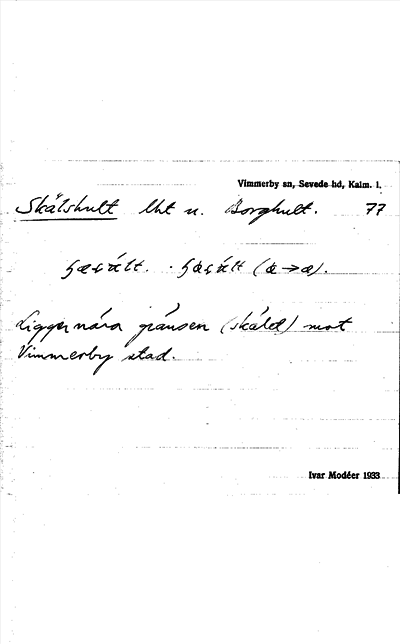 Vimmerby sn, Sevede hd, Kalm. l.
Skälshult lht u. Borghult. 77
Ligger nära gränsen (skälet) mot
Vimmerby stad.
Ivar Modéer 1933